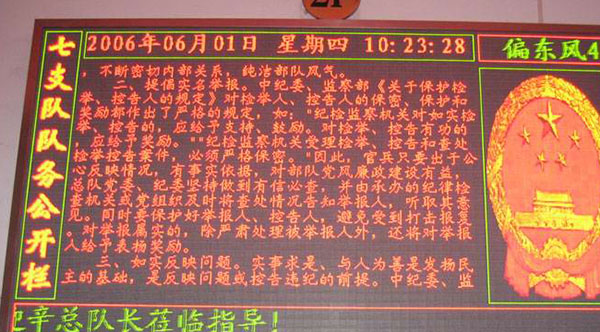 21
2006年06月01日 星期四 10:23:28
偏东风4
七支队队务公开栏
，不断密切内部关系，纯洁部队风气。
二、提倡实名举报。中纪委、监察部《关于保护检
举、控告人的规定》对检举人、控告人的保密、保护和
奖励都作出了严格的规定，如："纪检监察机关对如实检
举、控告的，应给予支持、鼓励。对检举、控告有功的
，应给予奖励。""纪检监察机关受理检举、控告和查处
检举控告案件，必须严格保密。"因此，官兵只要出于公
心反映情况，有事实依据，对部队党风廉政建设有益，
总队党委、纪委坚持做到有信必查，并由承办的纪律检
查机关或党组织及时将查处情况告知举报人，听取其意
见。同时要保护好举报人、控告人，避免受到打击报复
。对举报属实的，除严肃处理被举报人外，还将对举报
人给予表扬奖励。
三、如实反映问题。实事求是、与人为善是发扬民
主的基础，是反映问题或控告违纪的前提。中纪委、监
迎辛总队长莅临指导！